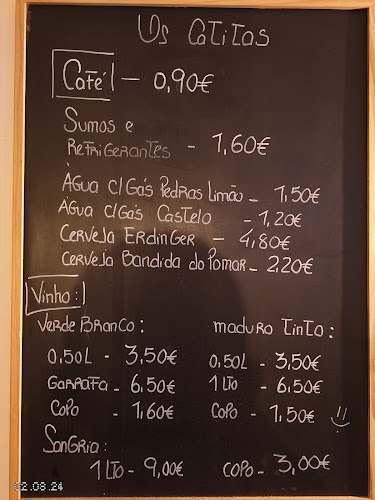 Os Catitas
Café - 0,90€
Sumos e
Refrigerantes - 1,60€
Água c/Gás Pedras Limão - 1,50€
Água c/Gás Castelo - 1,20€
Cerveja Erdinger - 4,80€
Cerveja Bandida do Pomar - 2,20€
Vinho:
Verde Branco:
0,50L - 3,50€
Garrafa - 6,50€
Copo - 1,60€
maduro tinto:
0,50L - 3,50€
1 Lto - 6,50€
Copo - 1,50€
Sangria:
1 Lto - 9,00€
copo - 3,00€
02.08.24